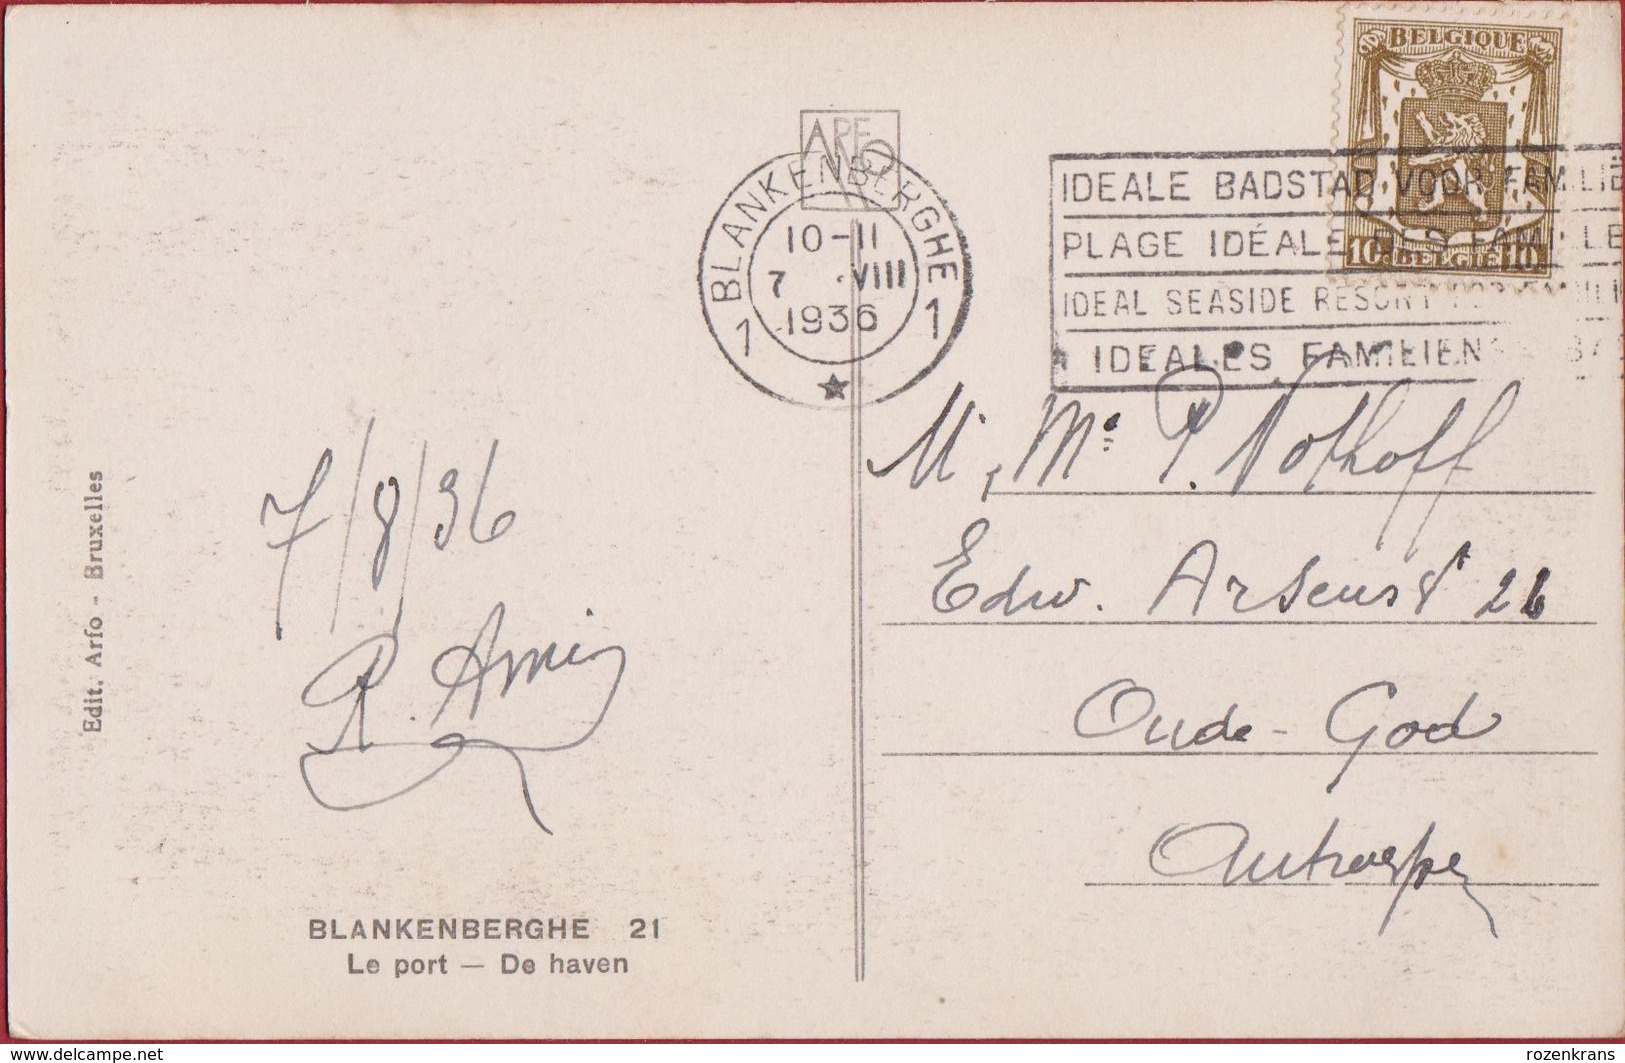 BELGIQUE
10c BELGIË 10c
ARFO
1 BLANKENBERGHE 1
10-11
7 VIII
1936
IDEALE BADSTAD VOOR FAMILIË
PLAGE IDÉALE DES FAMILLE
IDEAL SEASIDE RESORT FOR FAMILI
IDEALES FAMILIEN
7/8/36
M. P. Nothoff
Edw. Arsens 26
Oude-God
Antwerpen
Edit. Arfo - Bruxelles
BLANKENBERGHE 21
Le port — De haven
delcampe.net
rozenkrans